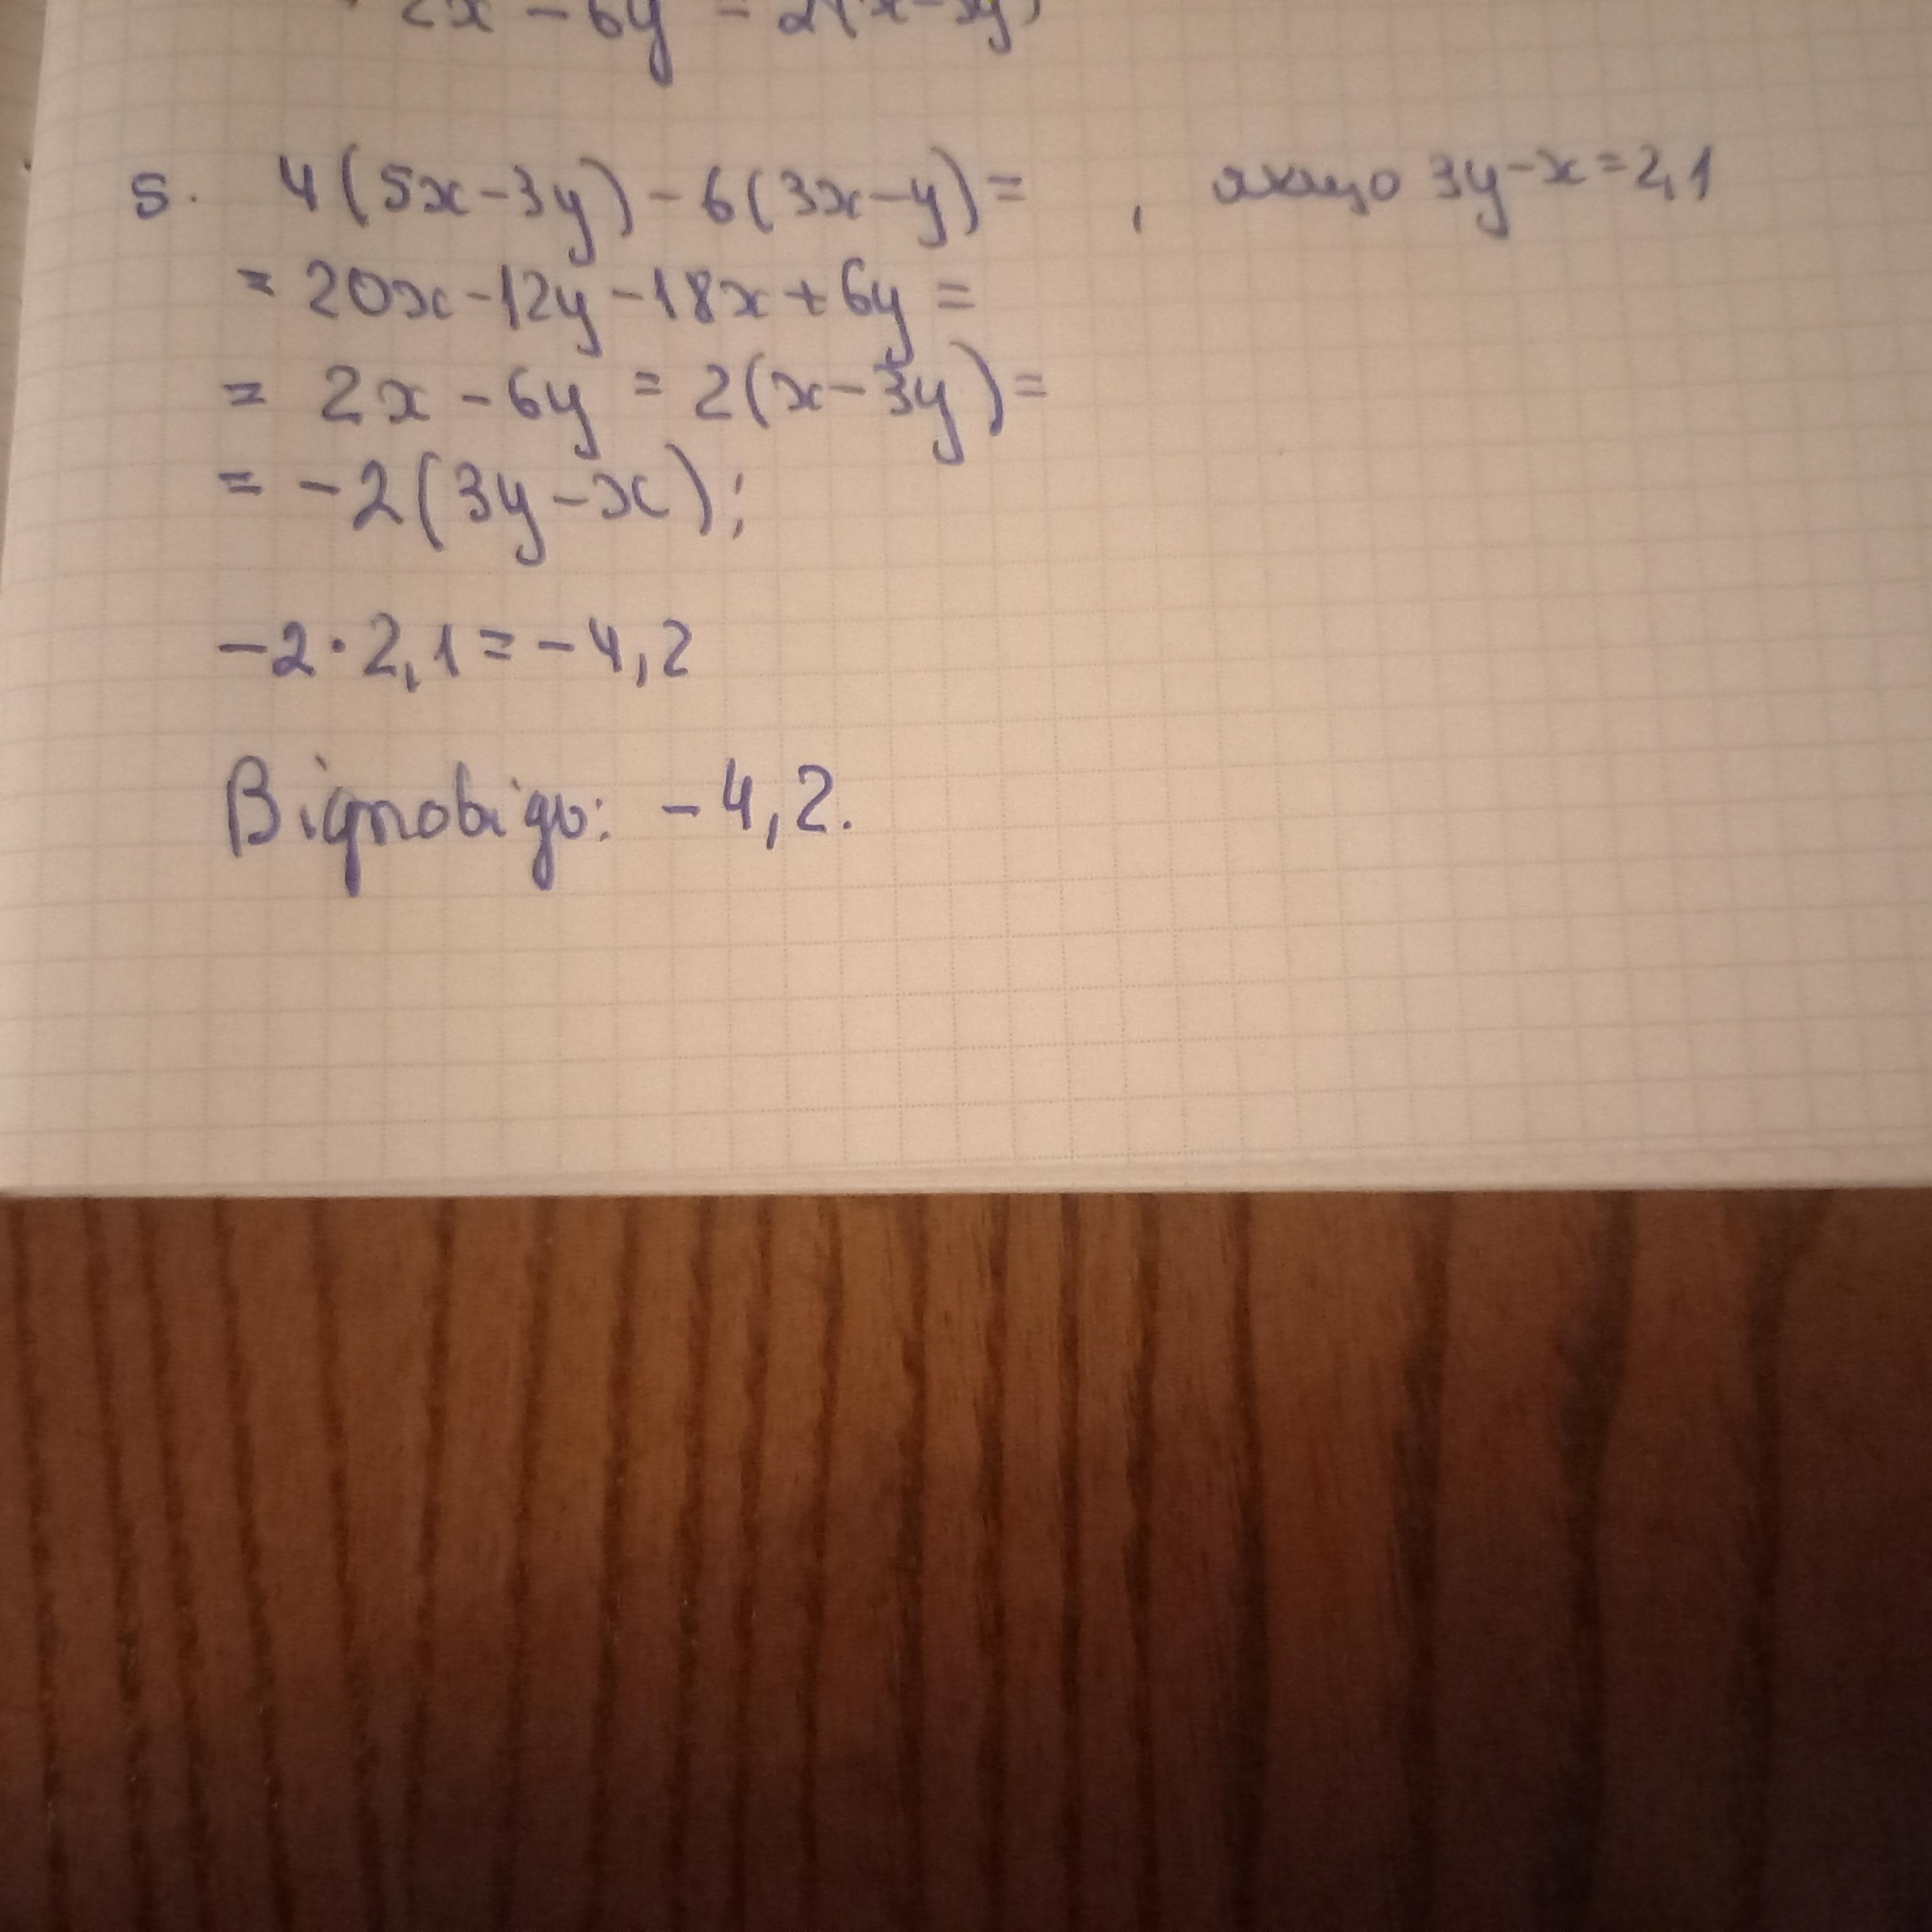 2x - 6y = 2(x-3y)
5. 4(5x-3y) - 6(3x-y) = , якщо 3y-x=2,1
= 20x-12y-18x+6y =
= 2x - 6y = 2(x-3y) =
= -2(3y-x);
-2·2,1=-4,2
Відповідь: -4,2.